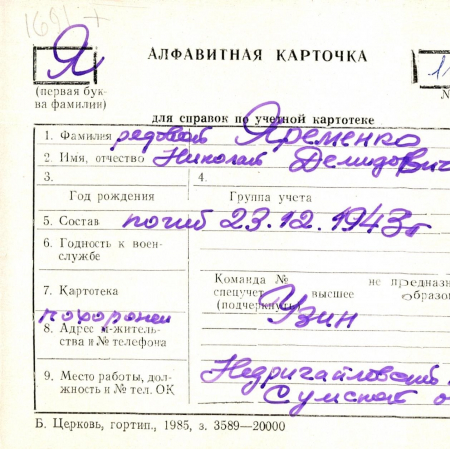 1691 +
Я
АЛФАВИТНАЯ КАРТОЧКА
11
(первая бук-
ва фамилии)
№
для справок по учетной картотеке
1. Фамилия рядовой Яременко
2. Имя, отчество Николай Демидович
3. 4.
Год рождения Группа учета
5. Состав погиб 23.12.1943г
6. Годность к воен-
службе
Команда № не предназн
7. Картотека спецучет высшее образо
(подчеркнуть) Узин
похоронен
8. Адрес м-житель-
ства и № телефона
9. Место работы, дол-
жность и № тел. ОК
Недригайловский
Сумской о
Б. Церковь, гортип., 1985, з. 3589—20000